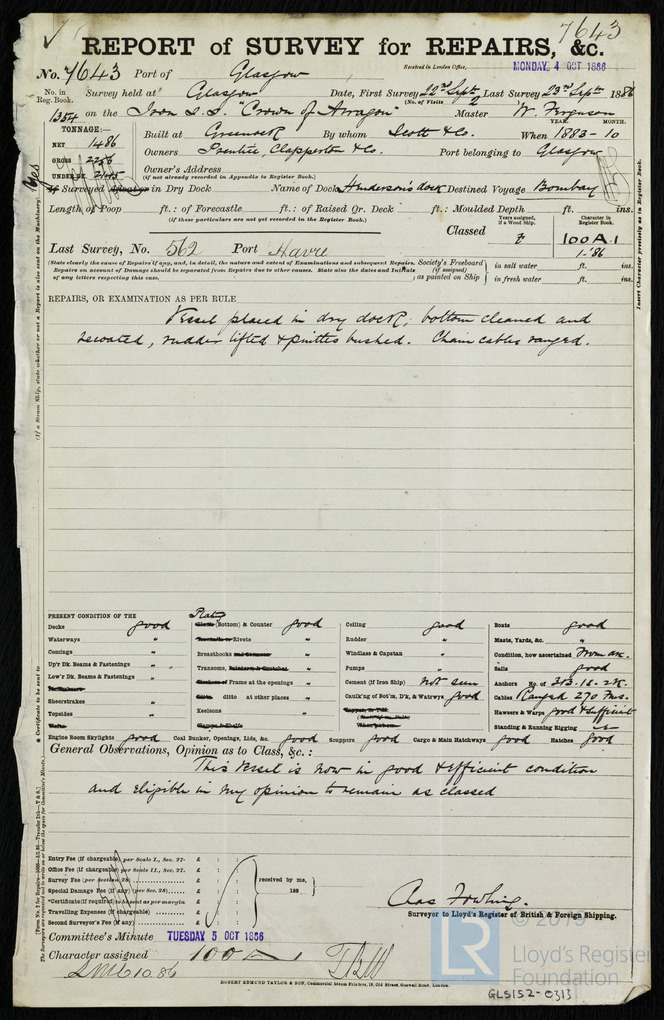 7643
REPORT of SURVEY for REPAIRS, &c.
Received in London Office,
MONDAY, 4 OCT 1886
No. 7643 Port of Glasgow
No. in Reg. Book. Survey held at Glasgow Date, First Survey 22nd Septr Last Survey 23rd Septr 1886
(No. of Visits 2
1354 on the Iron S.S. "Crown of Arragon" Master W. Ferguson
TONNAGE:— YEAR. MONTH.
NET 1486 Built at Greenock By whom Scott & Co. When 1883-10
GROSS 2256 Owners Prentice, Clapperton & Co. Port belonging to Glasgow
UNDER DK. 2145 Owner's Address
(if not already recorded in Appendix to Register Book.)
If Surveyed Afloat or in Dry Dock Name of Dock Henderson's dock Destined Voyage Bombay
Length of Poop ft.: of Forecastle ft.: of Raised Qr. Deck ft.: Moulded Depth ft. ins.
(if these particulars are not yet recorded in the Register Book.)
Years assigned, if a Wood Ship. Character in Register Book.
Classed 100 A.1
1-'86
Last Survey, No. 562 Port Havre
(State clearly the cause of Repairs if any, and, in detail, the nature and extent of Examinations and subsequent Repairs. Society's Freeboard in salt water ft. ins.
Repairs on account of Damage should be separated from Repairs due to other causes. State also the dates and Initials (if assigned)
of any letters respecting this case.) as painted on Ship in fresh water ft. ins.
REPAIRS, OR EXAMINATION AS PER RULE
Vessel placed in dry dock, bottom cleaned and
recoated, rudder lifted & pintles bushed. Chain cables ranged.
PRESENT CONDITION OF THE
Decks good Plating (Bottom) & Counter good Ceiling good Boats good
Waterways " Rivets " Rudder " Masts, Yards, &c. "
Comings " Breasthooks " Windlass & Capstan " Condition, how ascertained From dk.
Up'r Dk. Beams & Fastenings " Transoms, " Pumps " Sails good
Low'r Dk. Beams & Fastenings " Frame at the openings " Cement (if Iron Ship) Not seen Anchors No. of
Sheerstrakes " Ditto ditto at other places " Caulk'ng of Bot'm, D'k, & Watrwys good Cables Ranged 270 fms.
Topsides " Keelsons " Hawsers & Warps good & sufficient
Standing & Running Rigging
Engine Room Skylights good Coal Bunker, Openings, Lids, &c. good Scuppers good Cargo & Main Hatchways good Hatches good
General Observations, Opinion as to Class, &c.:
This Vessel is now in good & efficient condition
and eligible in my opinion to remain as classed
Entry Fee (if chargeable) per Scale I., Sec. 27. £ : :
Office Fee (if chargeable) per Scale II., Sec. 27. £ : :
Survey Fee (per Section 28) £ : : received by me,
Special Damage Fee (if any) (per Sec. 28) £ : : 188
*Certificate (if required) to be sent as per margin £ : :
Travelling Expenses (if chargeable) £ : :
Second Surveyor's Fee (if any) £ : :
Surveyor to Lloyd's Register of British & Foreign Shipping.
Committee's Minute TUESDAY 5 OCT 1886
Character assigned 100 A1
LMC 10.86
ROBERT EDMUND TAYLOR & SON, Commercial Steam Printers, 19, Old Street, Goswell Road, London.
© 2019
LR
Lloyd's Register
Foundation
GLS152-0313
Yes
(If a Steam Ship, state whether or not a Report is also sent on the Machinery.)
* Certificate to be sent to
Insert Character precisely as in Register Book.